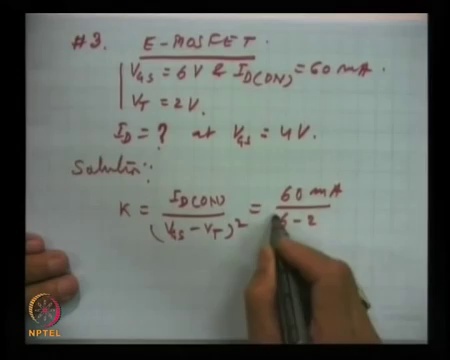 #3. E-MOSFET.
VGS = 6V & ID(ON) = 60 mA.
VT = 2V.
ID = ? at VGS = 4V.
Solution:
K = ID(ON) / (VGS - VT)² = 60 mA / 6-2
NPTEL